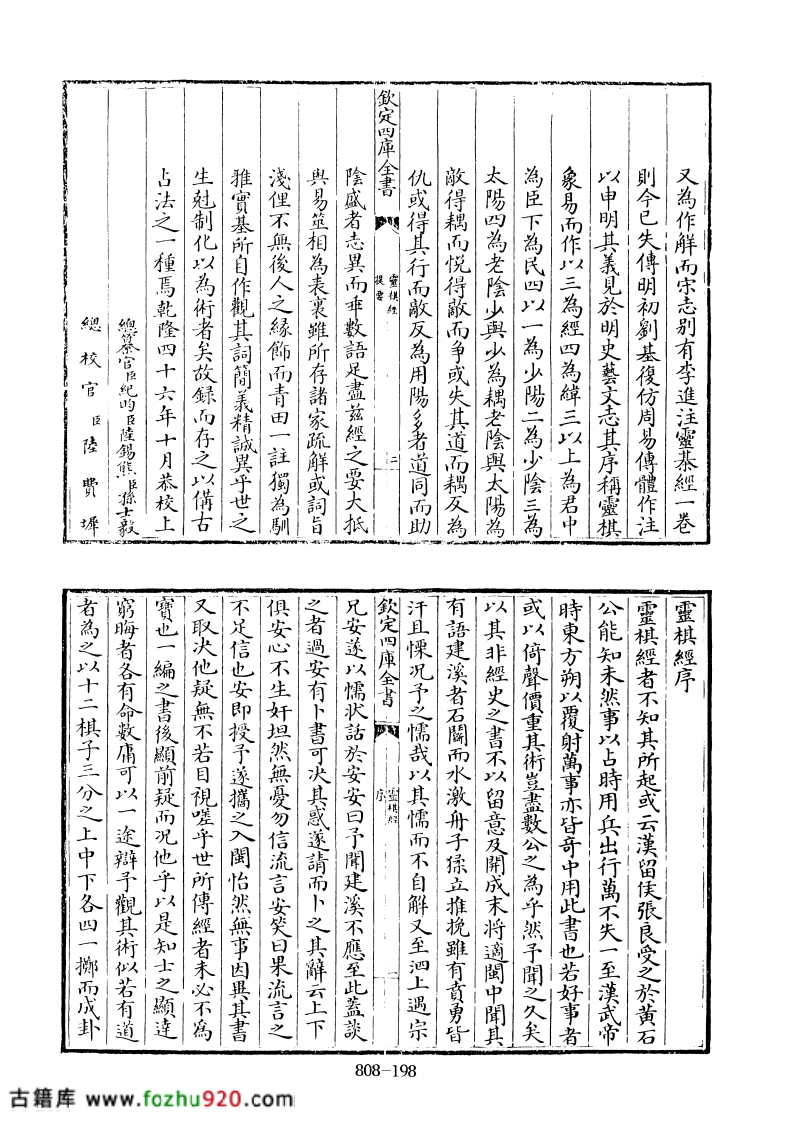 又為作解而宋志别有李進注靈棊經一卷
則今已失傳明初劉基復仿周易傳體作注
以申明其義見於明史藝文志其序稱靈棋
象易而作以三為經四為緯三以上為君中
為臣下為民四以一為少陽二為少陰三為
太陽四為老陰少與少為耦老陰與太陽為
敵得耦而悦得敵而争或失其道而耦反為
仇或得其行而敵反為用陽多者道同而助
欽定四庫全書
靈棋經
提要
二
陰盛者志異而乖數語足盡兹經之要大抵
與易筮相為表裏雖所存諸家疏解或詞旨
淺俚不無後人之緣飾而青田一註獨為馴
雅實基所自作觀其詞簡義精誠異乎世之
生尅制化以為術者矣故録而存之以備古
占法之一種焉乾隆四十六年十月恭校上
總纂官臣紀昀臣陸錫熊臣孫士毅
總校官臣陸費墀
靈棋經序
靈棋經者不知其所起或云漢留侯張良受之於黄石
公能知未然事以占時用兵出行萬不失一至漢武帝
時東方朔以覆射萬事亦皆竒中用此書也若好事者
或以倚聲價重其術豈盡數公之為乎然予聞之久矣
以其非經史之書不以留意及開成末將適閩中聞其
有語建溪者石闗而水激舟子猱立推挽雖有賁勇皆
汗且慄况予之懦哉以其懦而不自解又至泗上遇宗
欽定四庫全書
靈棋經
序
一
兄安遂以懦状話於安安曰予聞建溪不應至此蓋談
之者過安有卜書可决其惑遂請而卜之其辭云上下
俱安心不生奸坦然無憂勿信流言安笑曰果流言之
不足信也安即授予遂攜之入閩怡然無事因異其書
又取决他疑無不若目視嗟乎世所傳經者未必不為
寶也一編之書後顯前疑而况他乎以是知士之顯達
窮晦者各有命數庸可以一途辯予觀其術似若有道
者為之以十二棋子三分之上中下各四一擲而成卦
808-198
古籍库 www.fozhu920.com